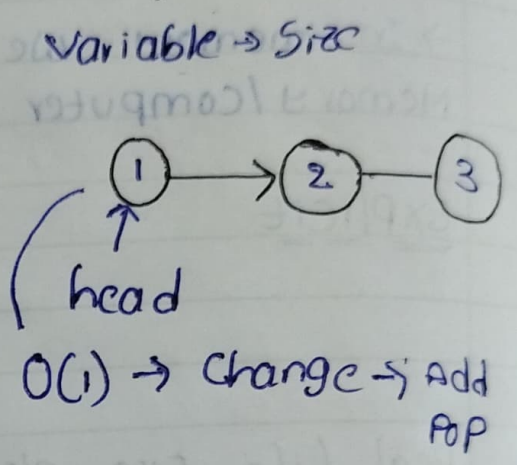 Variable → Size
1 → 2 — 3
head
O(1) → Change → Add
Pop